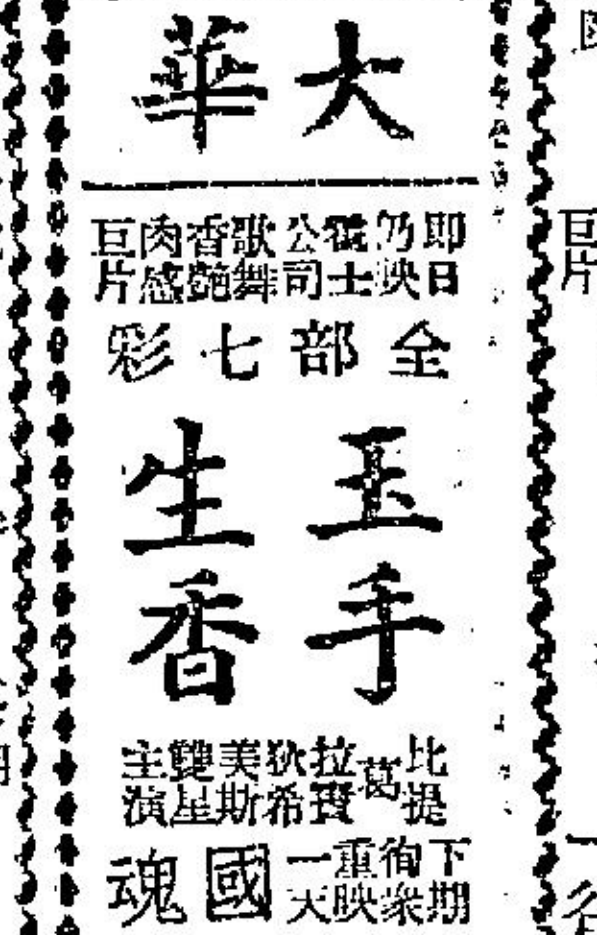 大華
即日仍映霍士公司歌舞香艷肉感巨片
全部七彩
玉手
生香
比提葛拉寶狄希美斯雙星主演
下期徇衆重映一天
國魂
巨片